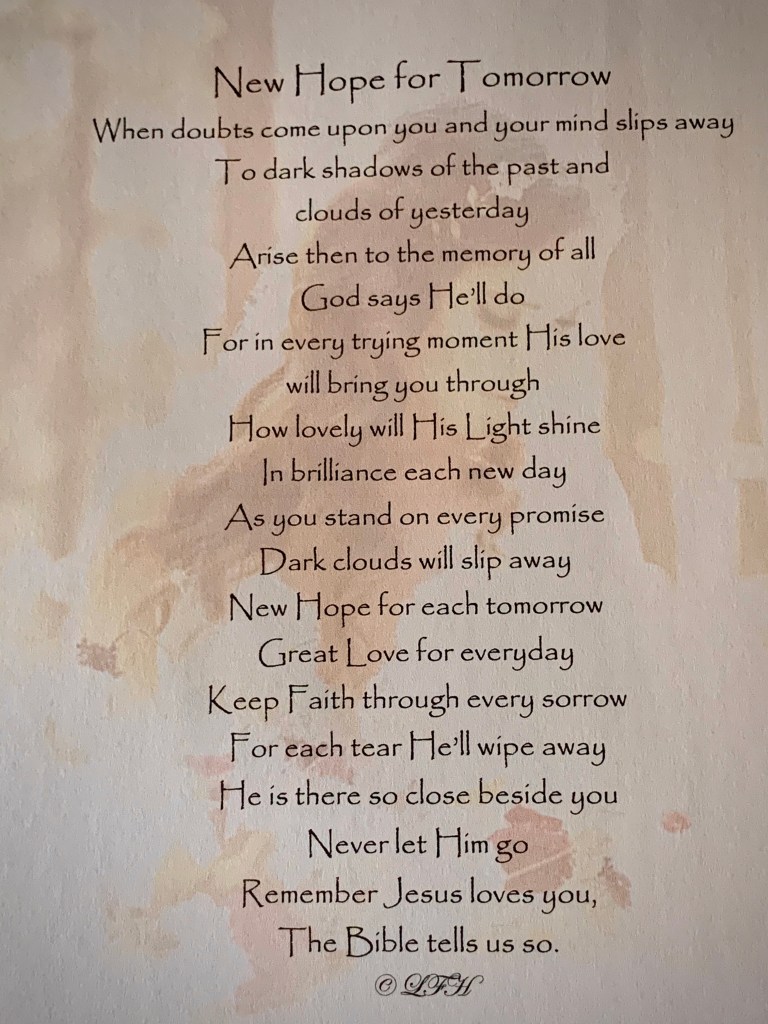 New Hope for Tomorrow
When doubts come upon you and your mind slips away
To dark shadows of the past and
clouds of yesterday
Arise then to the memory of all
God says He'll do
For in every trying moment His love
will bring you through
How lovely will His Light shine
In brilliance each new day
As you stand on every promise
Dark clouds will slip away
New Hope for each tomorrow
Great Love for everyday
Keep Faith through every sorrow
For each tear He'll wipe away
He is there so close beside you
Never let Him go
Remember Jesus loves you,
The Bible tells us so.
© LFH